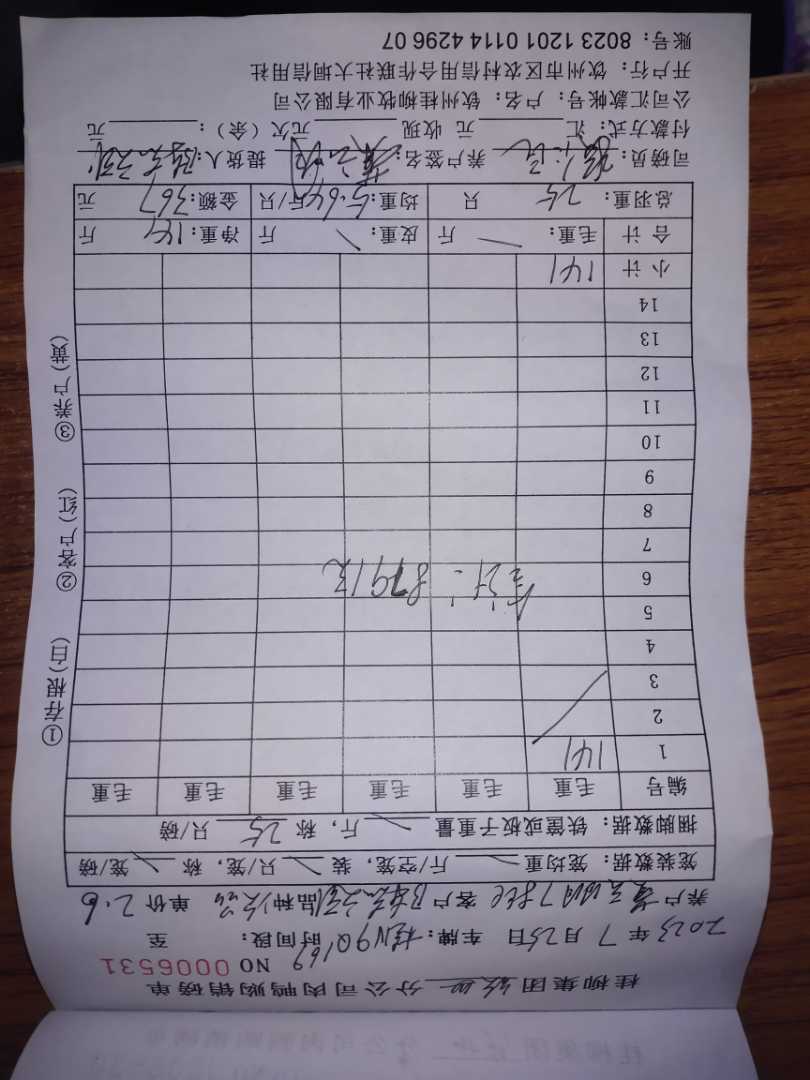 桂柳集团 分公司肉鸭购销磅单
NO 0006531
2023年7月25日 车牌：桂N9Q169 时间段： 至
养户 客户 品种 单价 2.6
笼装数据：笼均重 斤/空笼，装 只/笼，称 笼/磅
捆脚数据：铁筐或板子重量 斤，称 25 只/磅
编号 毛重 毛重 毛重 毛重 毛重 毛重
1 141
2
3
4
5
6 合计：8791只
7
8
9
10
11
12
13
14
小计 141
合计 毛重： 斤 皮重： 斤 净重：141 斤
总羽重： 25 只 均重：5.64斤/只 金额：367 元
司磅员： 养户签名： 提货人：
付款方式：汇 元 收现 元欠（余）： 元
公司汇款帐号：户名：钦州桂柳牧业有限公司
开户行：钦州市区农村信用合作联社大垌信用社
账号：8023 1201 0114 4296 07
①存根(白) ②客户(红) ③养户(黄)